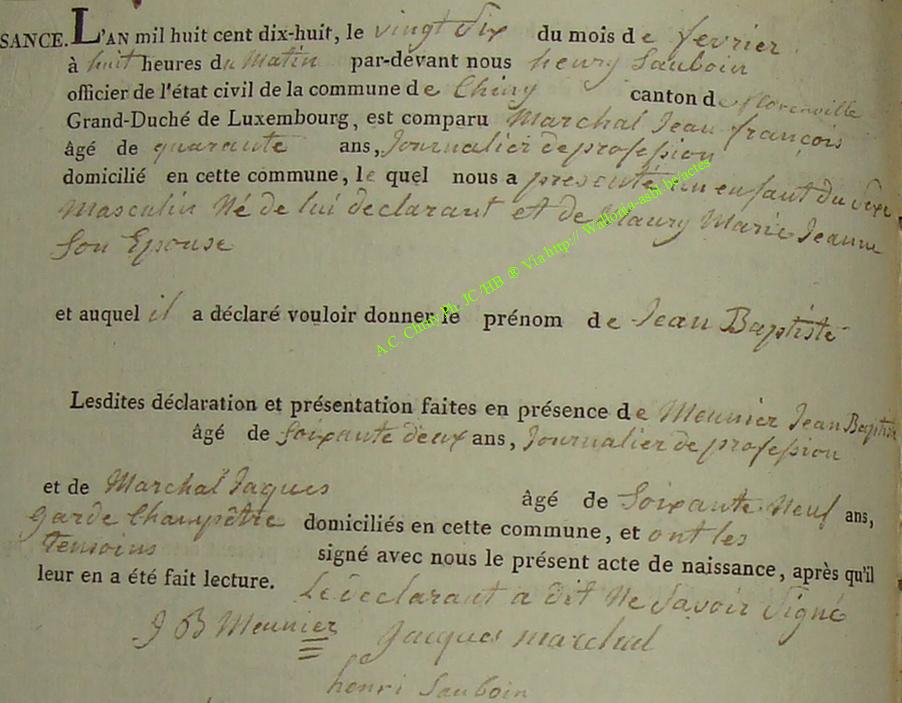 SANCE. L'AN mil huit cent dix-huit, le vingt Six du mois de fevrier
à huit heures du Matin par-devant nous henry Sauboin
officier de l'état civil de la commune de Chiny canton de florenville
Grand-Duché de Luxembourg, est comparu Marchal Jean françois
âgé de quarante ans, Journalier de profession
domicilié en cette commune, le quel nous a presenté un enfant du Sexe
Masculin Né de lui declarant et de Maury Marie Jeanne
Son Epouse
A.C. Chiny Ph. JC /HB ® Via http:// Wallonia-asbl.be/actes
et auquel il a déclaré vouloir donner le prénom de Jean Baptiste
Lesdites déclaration et présentation faites en présence de Meunier Jean Baptiste
âgé de Soixante deux ans, Journalier de profession
et de Marchal Jaques âgé de Soixante Neuf ans,
garde Champêtre domiciliés en cette commune, et ont les
temoins signé avec nous le présent acte de naissance, après qu'il
leur en a été fait lecture. Le declarant a dit Ne Savoir Signé
J B Meunier Jacques marchal
henri Sauboin